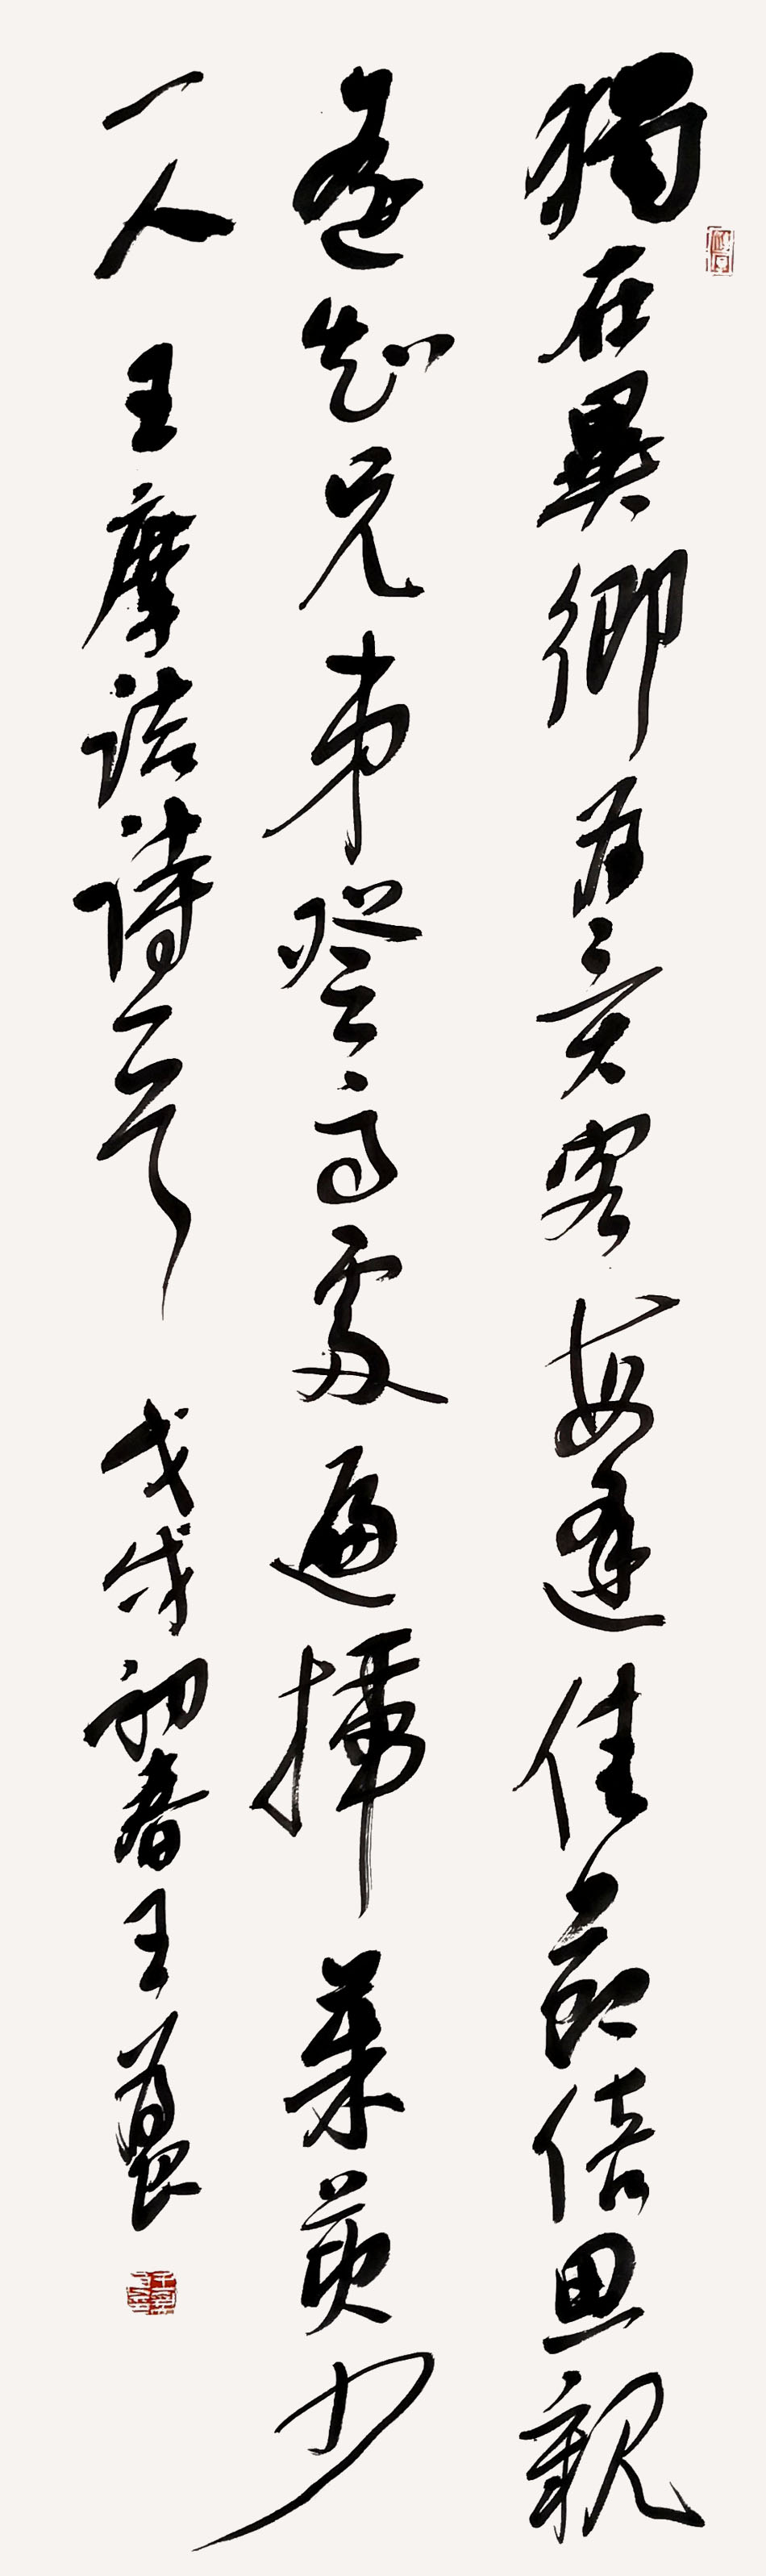 獨在異鄉為異客每逢佳節倍思親
遙知兄弟登高處遍插茱萸少
一人 王摩詰詩一首 戊戌初春王